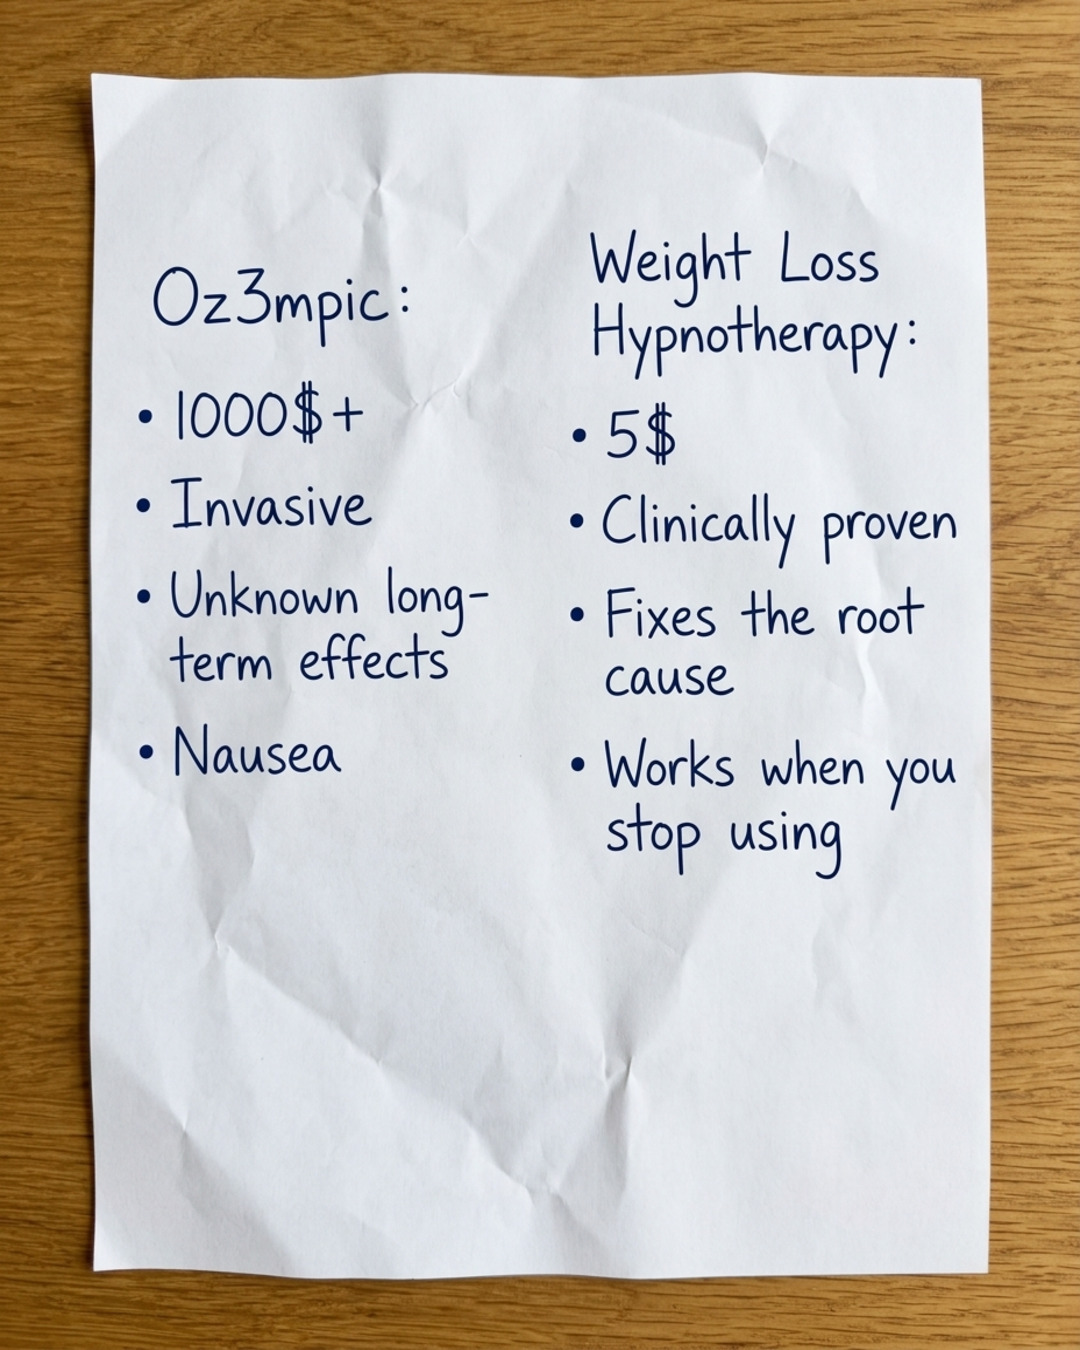 Oz3mpic:
• 1000$+
• Invasive
• Unknown long-
term effects
• Nausea
Weight Loss
Hypnotherapy:
• 5$
• Clinically proven
• Fixes the root
cause
• Works when you
stop using